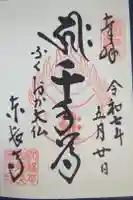 奉拝
令和七年
五月廿日
千手尊
ふくおか大仏
東長寺